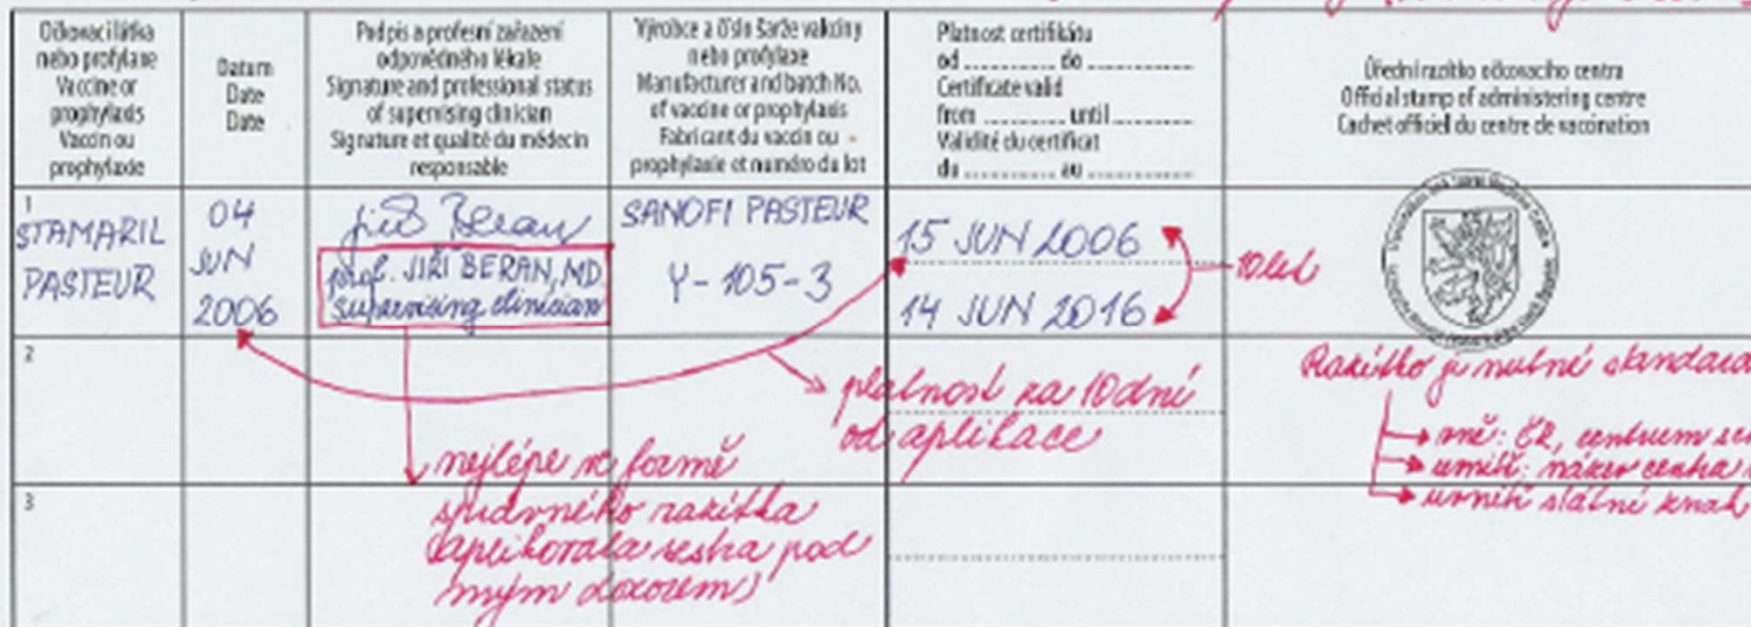 Očkovací látka
nebo profylaxe
Vaccine or
prophylaxis
Vaccin ou
prophylaxie
Datum
Date
Date
Podpis a profesní zařazení
odpovědného lékaře
Signature and professional status
of supervising clinician
Signature et qualité du médecin
responsable
Výrobce a číslo šarže vakcíny
nebo profylaxe
Manufacturer and batch No.
of vaccine or prophylaxis
Fabricant du vaccin ou
prophylaxie et numéro du lot
Platnost certifikátu
od ............ do ............
Certificate valid
from ............ until ............
Validité du certificat
du ............ au ............
Úřední razítko očkovacího centra
Official stamp of administering centre
Cachet officiel du centre de vaccination
1
STAMARIL
PASTEUR
04
JUN
2006
Jiří Beran
prof. JIŘÍ BERAN, MD
supervising clinician
SANOFI PASTEUR
Y-105-3
15 JUN 2006
14 JUN 2016
10 let
2
platnost za 10 dní
od aplikace
Razítko je nutné
ČR, centrum
uvnitř státní znak
nejlépe ve formě
3
správného razítka
(aplikovala sestra pod
mým dozorem)